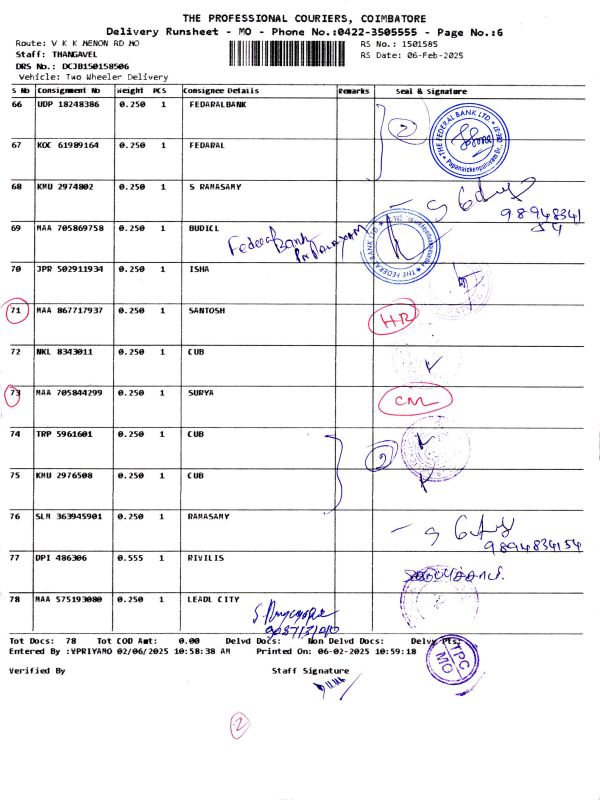 THE PROFESSIONAL COURIERS, COIMBATORE
Delivery Runsheet - MO - Phone No.:0422-3505555 - Page No.:6
Route: V K K MENON RD MO
RS No.: 1501585
Staff: THANGAVEL
RS Date: 06-Feb-2025
DRS No.: DCJB150158506
Vehicle: Two Wheeler Delivery
S No Consignment No Weight PCS Consignee Details Remarks Seal & Signature
66 UDP 18248386 0.250 1 FEDARALBANK
2
THE FEDERAL BANK LTD.
67 KOC 61989164 0.250 1 FEDARAL
68 KMU 2974802 0.250 1 S RAMASAMY
98948341
54
69 MAA 705869758 0.250 1 BUDICL
Federal Bank
THE FEDERAL BANK LTD
70 JPR 502911934 0.250 1 ISHA
71 MAA 867717937 0.250 1 SANTOSH
HR
72 NKL 8343011 0.250 1 CUB
73 MAA 705844299 0.250 1 SURYA
CM
74 TRP 5961601 0.250 1 CUB
2
75 KMU 2976508 0.250 1 CUB
76 SLM 363945901 0.250 1 RAMASAMY
9894834154
77 DPI 486306 0.555 1 RIVILIS
78 MAA 575193080 0.250 1 LEADL CITY
Tot Docs: 78 Tot COD Amt: 0.00 Delvd Docs: Non Delvd Docs: Delvd Pts:
Entered By :VPRIYAMO 02/06/2025 10:58:38 AM Printed On: 06-02-2025 10:59:18
TPC
MO
Verified By Staff Signature
2